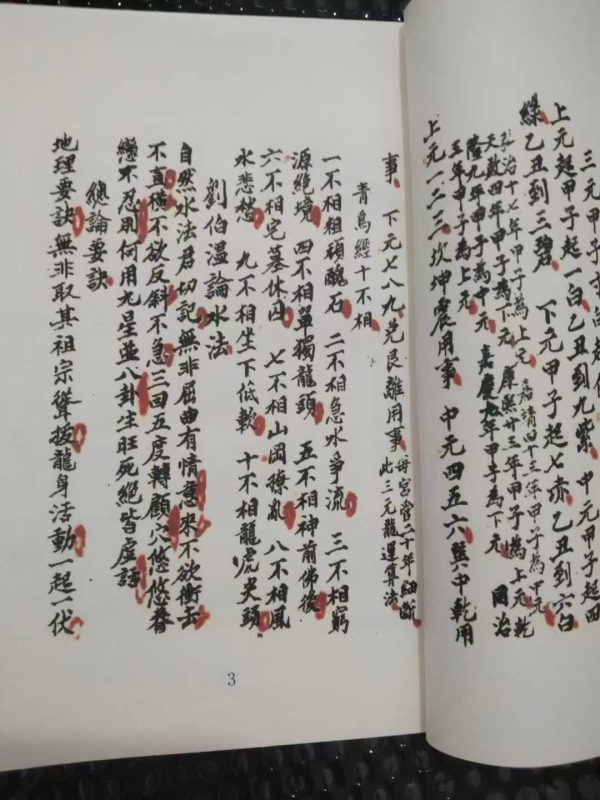 上元起甲子起一白乙丑到九紫 中元甲子起四
綠乙丑到三碧 下元甲子起七赤乙丑到六白
弘治十七年甲子為上元 嘉靖四十三年甲子為中元
天啟四年甲子為下元 康熙廿三年甲子為上元 乾
隆九年甲子為中元 嘉慶九年甲子為下元 同治
三年甲子為上元
上元一二三坎坤震用事 中元四五六巽中乾用
事 下元七八九兌艮離用事 每宮管二十年細斷
此三元龍運算法
青烏經十不相
一不相粗頑醜石 二不相急水爭流 三不相窮
源絕境 四不相單獨龍頭 五不相神前佛後
六不相宅墓休囚 七不相山岡撩亂 八不相風
水悲愁 九不相坐下低軟 十不相龍虎尖頭
劉伯溫論水法
自然水法君切記無非屈曲有情意來不欲衝去
不直橫不欲反斜不急三回五度轉顧穴悠悠眷
戀不忍別何用九星並八卦生旺死絕皆虛話
總論要訣
地理要訣無非取其祖宗聳拔龍身活動一起一代
3